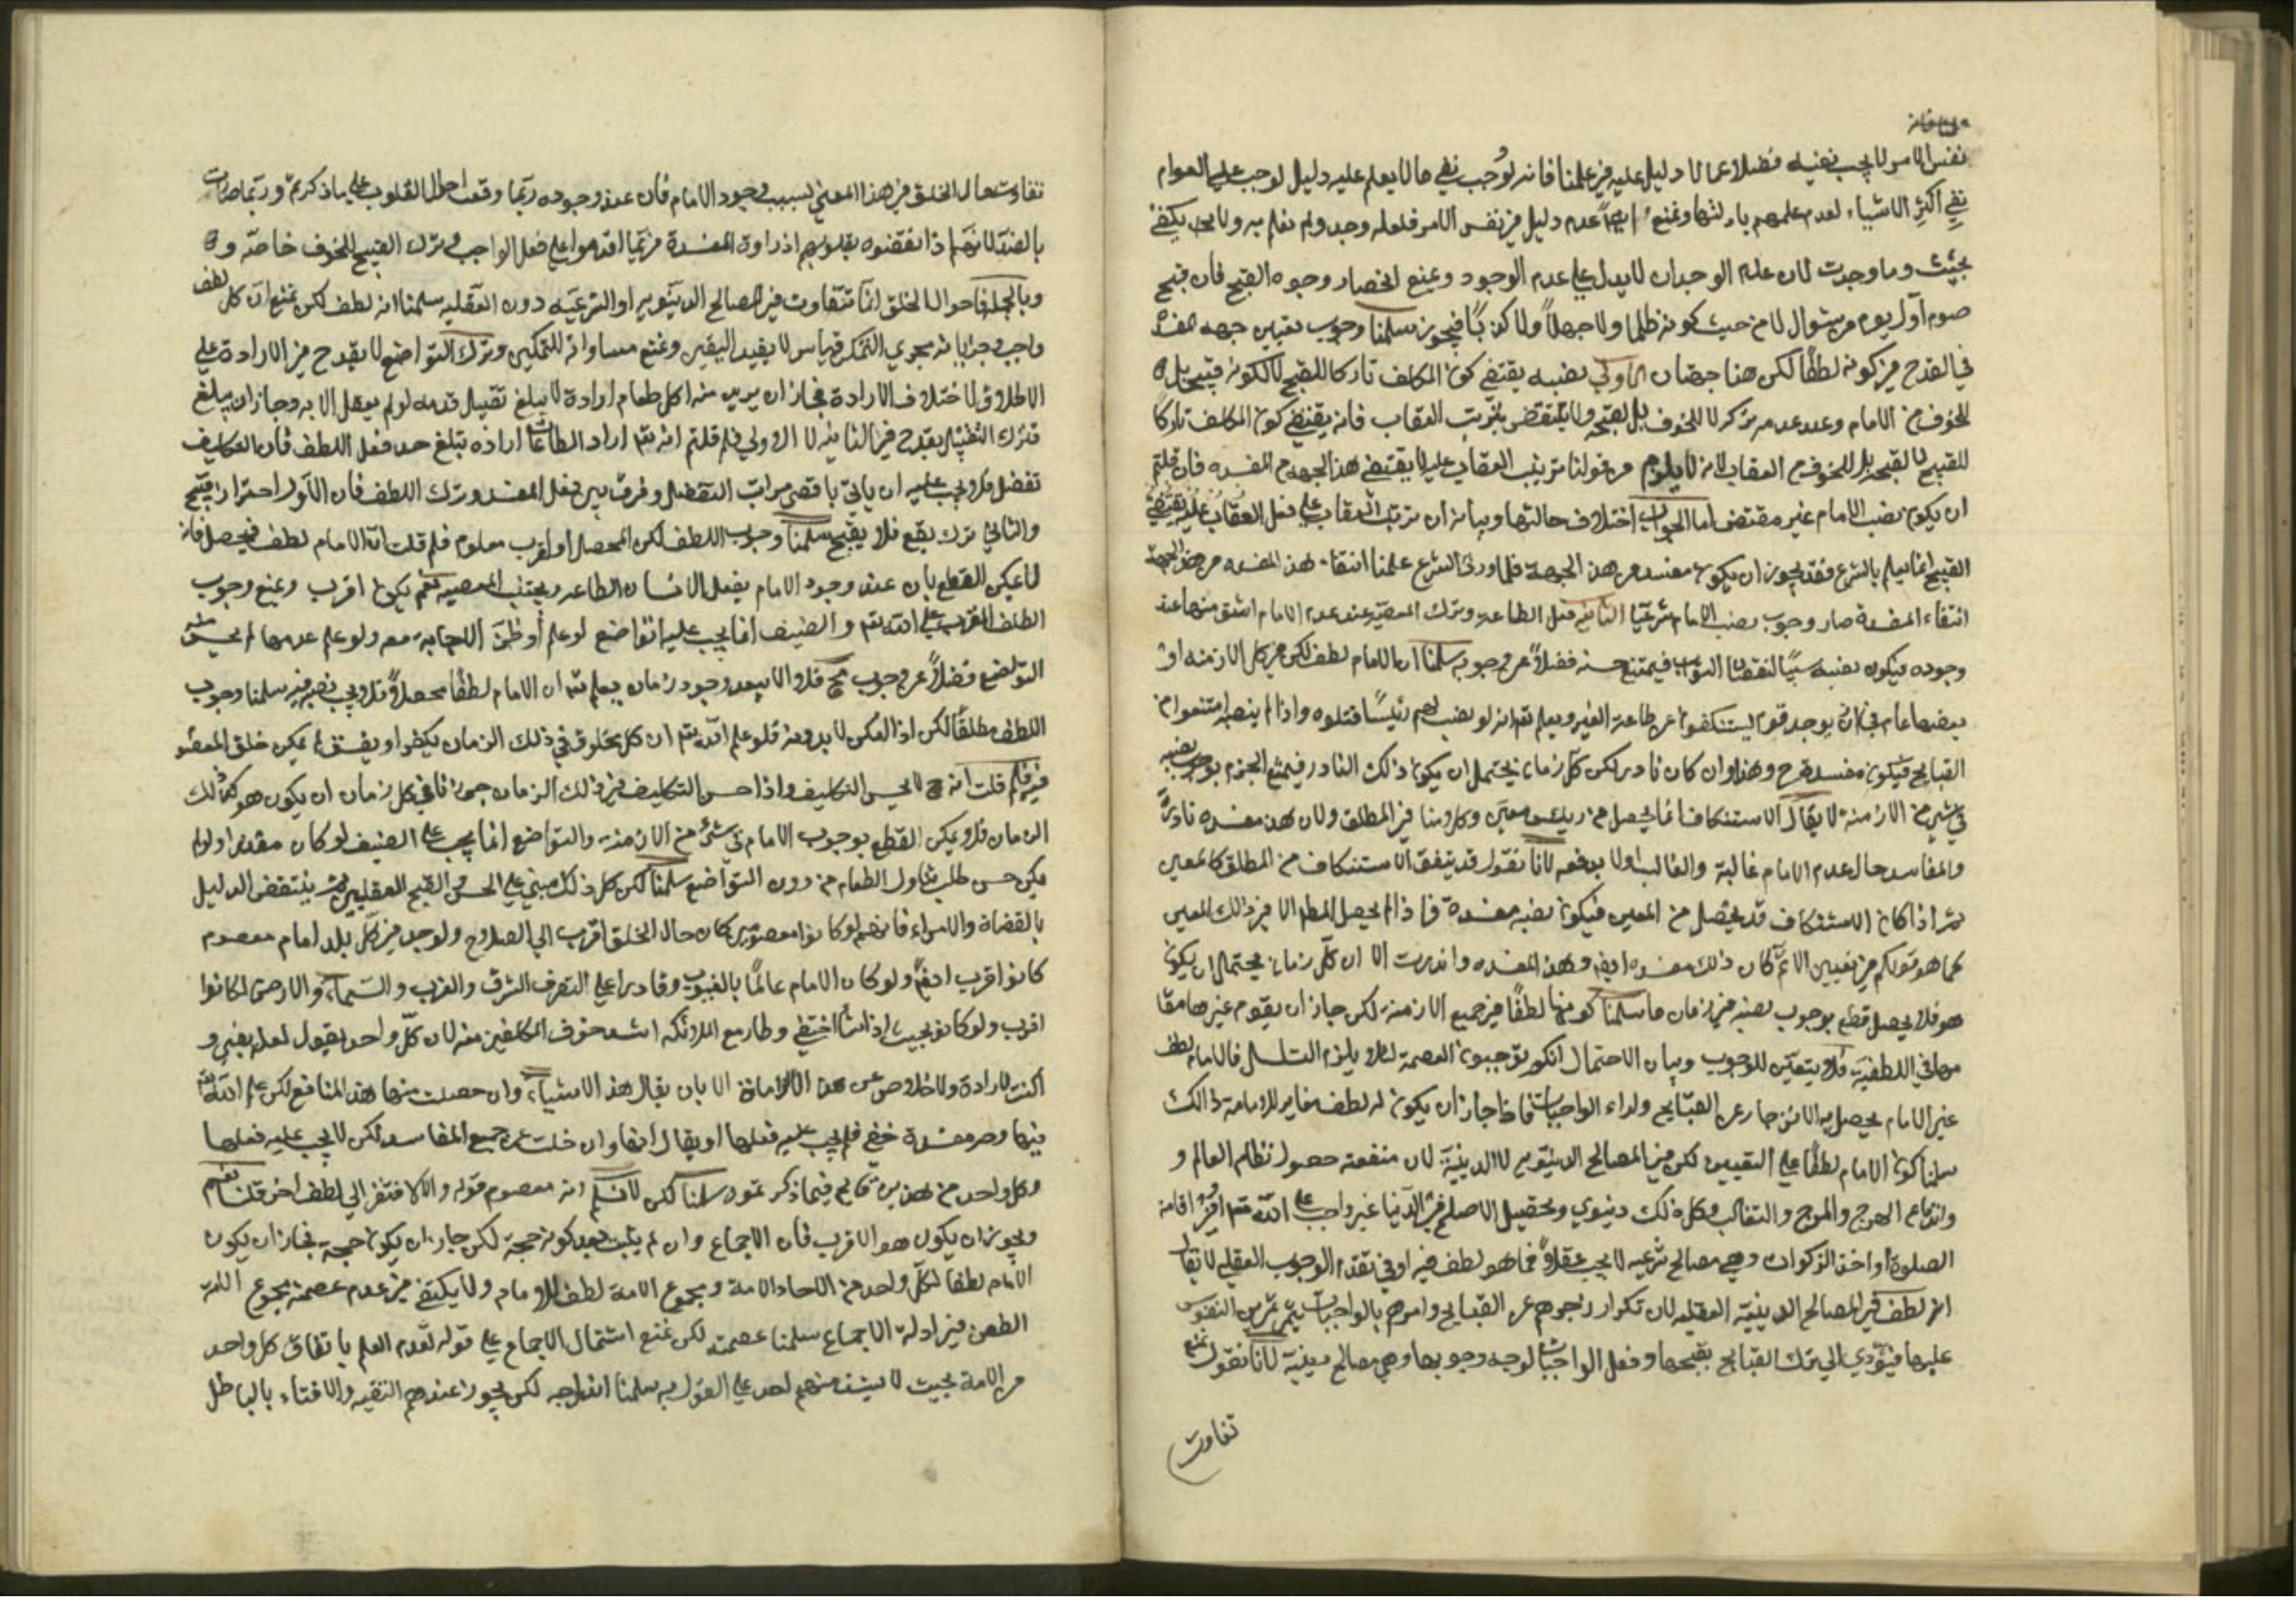 نفس الامر لا يجب نفيه فضلا عما لا دليل عليه في علمنا فانه لو وجب نفي ما لا يعلم عليه دليل لوجب على العوام
نفي اكثر الاشياء لعدم علمهم بادلتها ونمنع ايضا عدم دليل في نفس الامر فلعله وجد ولم نعلم به ولا يكفي
بحثت وما وجدت لان عدم الوجدان لا يدل على عدم الوجود ونمنع انحصار وجوه القبح فان قبح
صوم اول يوم من شوال لا من حيث كونه ظلما ولا جهلا ولا كذبا فيجوز سلمنا وجوب تعيين جهة المفسدة
في القدح في كونه لطفا لكن هنا جهتان الاولى نصبه يقتضي كون المكلف تاركا للقبيح لا لكونه قبيحا بل
للخوف من الامام وعند عدمه تركه لا للخوف بل لقبحه ولا ينتقض بترتيب العقاب فانه يقتضي كون المكلف تاركا
للقبيح لا لقبحه بل للخوف من العقاب لانه لا يلزم من قولنا ترتيب العقاب عليه لا يقتضي هذه الجهة من المفسدة فان قلتم
ان يكون نصب الامام غير مقتض اما الجواب اختلاف حالتها وبيانه ان ترتب العقاب على فعل
القبيح انما يعلم بالشرع فقد يجوز ان يكون مفسدة من هذه الجهة فلما ورد الشرع علمنا انتفاء هذه المفسدة من هذه الجهة
انتفاء المفسدة صار وجوب نصب الامام شرعيا الثانية فعل الطاعة وترك المعصية عند عدم الامام اشق منهما عند
وجوده فيكون نصبه سببا لنقصان الثواب فيمتنع حسنه فضلا عن وجوبه سلمنا ان الامام لطف لكن في كل الازمنة او
بعضها عام في ان يوجد قوم يستنكفوا عن طاعة الغير ويعلم تعم انه لو نصب لهم رئيسا قتلوه واذا لم ينصبه امتنعوا من
القبايح فيكون مفسدة وهذا وان كان نادرا لكن كل زمان يحتمل ان يكون ذلك النادر فيمتنع الجزم بوجوب نصبه
في شيء من الازمنة لا يقال الاستنكاف انما يحصل من رئيس معين وكلامنا في المطلق ولان هذه مفسدة نادرة
والمفاسد حال عدم الامام غالبة والغالب اولا بدفعه لانا نقول قد يتفق الاستنكاف من المطلق كالمعين
ثم اذا كان الاستنكاف قد يحصل من المعين فيكون نصبه مفسدة فاذا لم يحصل المطلق الا في ذلك المعين
كما هو قولكم في تعيين الائمة كان ذلك مفسدة ايضا وهذه المفسدة وان ندرت الا ان كل زمان يحتمل ان يكون
هو فلا يحصل قطع بوجوب نصبه في زمان ما سلمنا كونها لطفا في جميع الازمنة لكن جاز ان يقوم غيرها مقا
مها في اللطفية فلا يتعين للوجوب وبيان الاحتمال انكم توجبون العصمة لئلا يلزم التسلسل فالامام لطف
غير الامام يحصل به الانزجار عن القبايح ولاداء الواجبات فاذا جاز ان يكون له لطف مغاير للامامة فذلك
سلمنا كون الامام لطفا على التعيين لكن في المصالح الدنيوية لا الدينية لان منفعته حصول نظام العالم و
واندفاع الهرج والمرج والتغالب وكل ذلك دنيوي وتحصيل الاصلح في الدنيا غير واجب على الله تعم او في اقامة
الصلوة او اخذ الزكوات وهي مصالح شرعية لا يجب عقلا فما هو لطف فيه اولى بعدم الوجوب العقلي لا يقال
انه لطف في المصالح الدينية العقلية لان تكرار زجرهم عن القبايح وامرهم بالواجبات يتمرس النفوس
عليها فيؤدي الى ترك القبايح بقبحها وفعل الواجبات لوجه وجوبها وهي مصالح دينية لانا نقول نمنع
تفاوت
تفاوت حال الخلق في هذا المعنى بسبب وجود الامام فان عند وجوده ربما وقعت احوال القلوب على ما ذكرتم وربما صارت
بالضد لانهم اذا بغضوه بقلوبهم ازدادت المفسدة فربما اقدموا على فعل الواجب وترك القبيح للخوف خاصة
وبالجملة فاحوال الخلق انما تتفاوت في المصالح الدنيوية او الشرعية دون العقلية سلمنا انه لطف لكن نمنع ان كل لطف
واجب وجريانه مجرى التمكن قياس لا يفيد اليقين ونمنع مساواته للتمكين وترك التواضع لا يقدح في الارادة على
الاطلاق لاختلاف الارادة فجاز ان يريد منه اكل طعام ارادة لا يبلغ تقبيل قدمه لو لم يفعل الا به وجاز ان يبلغ
فترك التقبيل يقدح في الثانية لا الاولى فلم قلتم انه تعم اراد الطاعات ارادة تبلغ حد فعل اللطف فان التكليف
تفضل فلا يجب عليه ان ياتي باقصى مراتب التفضل وفرق بين فعل المفسدة وترك اللطف فان الاول احترار يقبح
والثاني ترك نفع فلا يقبح سلمنا وجوب اللطف لكن المحصل او المقرب معلوم فلم قلت ان الامام لطف محصل فانه
لا يمكن القطع بان عند وجود الامام يفعل الانسان الطاعة ويجتنب المعصية نعم يكون اقرب ونمنع وجوب
اللطف المقرب على الله تعم والضيف انما يجب عليه التواضع لو علم او ظن الاجابة معه ولو علم عدمها لم يحسن منه
التواضع فضلا عن وجوب فلا بعد وجود زمان يعلم تعم ان الامام لطفا محصلا فلا يجب نصبه فيه سلمنا وجوب
اللطف مطلقا لكن اذا امكن لا بدونه فلو علم الله تعم ان كل مخلوق في ذلك الزمان يكفر او يفسق لم يمكن خلق المعصوم
فيه فلم قلت انه لا يحسن التكليف واذا حسن التكليف في ذلك الزمان جوزنا في كل زمان ان يكون هو كذلك
الزمان فلا يمكن القطع بوجوب الامام في شيء من الازمنة والتواضع انما يجب على الضيف لو كان مقدورا ولو لم
يمكن حسن طلب تناول الطعام من دون التواضع سلمنا لكن كل ذلك مبني على الحسن والقبح العقليين ثم ينتقض الدليل
بالقضاة والامراء فانهم لو كانوا معصومين كان حال الخلق اقرب الى الصلاح ولو وجد في كل بلد امام معصوم
كانوا اقرب ايضا ولو كان الامام عالما بالغيوب وقادرا على التصرف الشرق والغرب والسماء والارض لكانوا
اقرب ولو كان بحيث اذا شاء اختفى وطار مع الملائكة اشتد خوف المكلفين منه لان كل واحد يقول لعله يغيب و
اكثر الارادة ولا خلاص عن هذه الالزامات الا بان يقال هذه الاشياء وان حصلت منها هذه المنافع لكن علم الله تعم
فيها وجه مفسدة خفي فلم يجب عليه فعلها او يقال انها وان خلت عن جميع المفاسد لكن لا يجب عليه فعلها
وكل واحد من هذين قائم فيما ذكرتموه سلمنا لكن لا نسلم انه معصوم قوله والا لافتقر الى لطف اخر قلنا نعم
ويجوز ان يكون هو الاقرب فان الاجماع وان لم يثبت بعد كونه حجة لكن جاز ان يكون حجة فجاز ان يكون
الامام لطفا لكل واحد من الاحاد الامة ومجموع الامة لطف للامام ولا يكتفى في عدم عصمة مجموع الامة
الطعن في ادلة الاجماع سلمنا عصمته لكن نمنع اشتمال الاجماع على قوله لعدم العلم باتفاق كل واحد
من الامة بحيث لا يشذ منهم احد على القول به سلمنا اندراجه لكن يجوز عندهم التقية والافتاء بالباطل